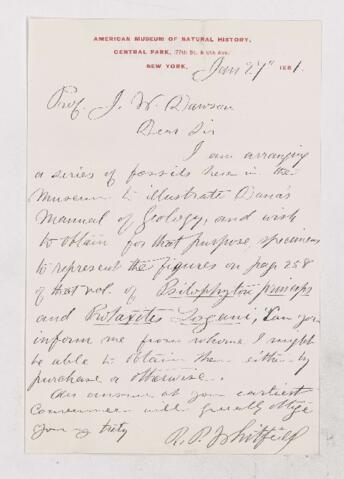 AMERICAN MUSEUM OF NATURAL HISTORY,
CENTRAL PARK, (77th St. & 8th Ave.
NEW YORK, Jan 27" 1881.
Prof. J. W. Dawson
Dear Sir
I am arranging
a series of fossils here in the
Museum to illustrate Dana's
Manual of Geology, and wish
to obtain for that purpose, specimens
to represent the figures on page 258
of that vol. of Psilophyton princeps
and Prototaxites Logani, Can you
inform me from whom I might
be able to obtain them either by
purchase or otherwise.
An answer at your earliest
convenience will greatly oblige
Yours truly
R. P. Whitfield